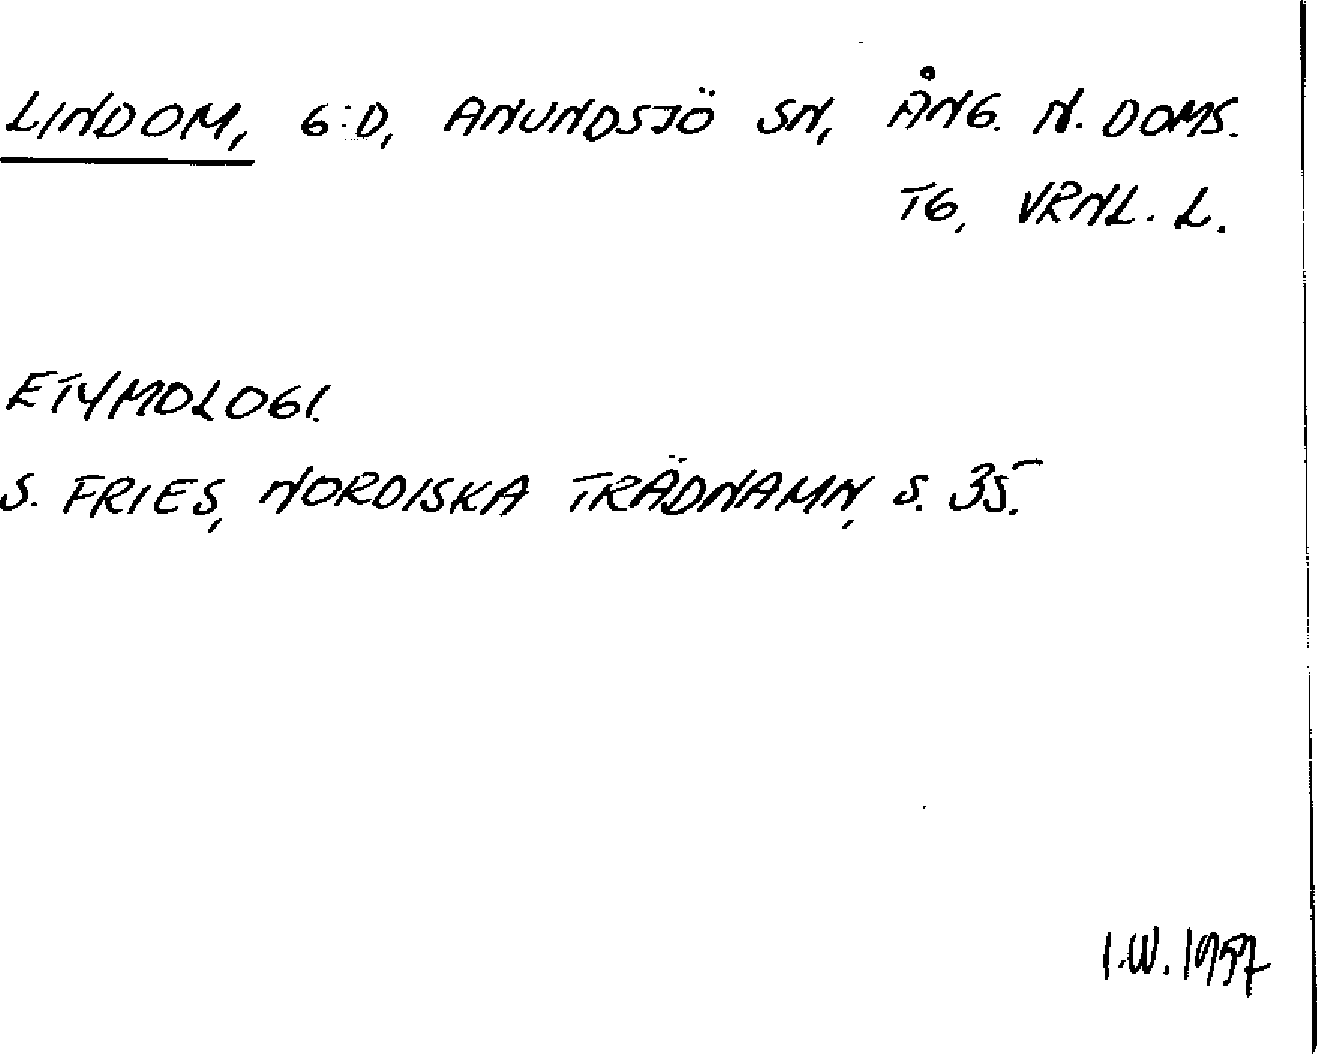 LINDOM, G:D, ANUNDSJÖ SN, ÅNG. N. DOMS.
TG, VRNL. L.
ETYMOLOGI.
S. FRIES, NORDISKA TRÄDNAMN, S. 35.
I.W. 1957